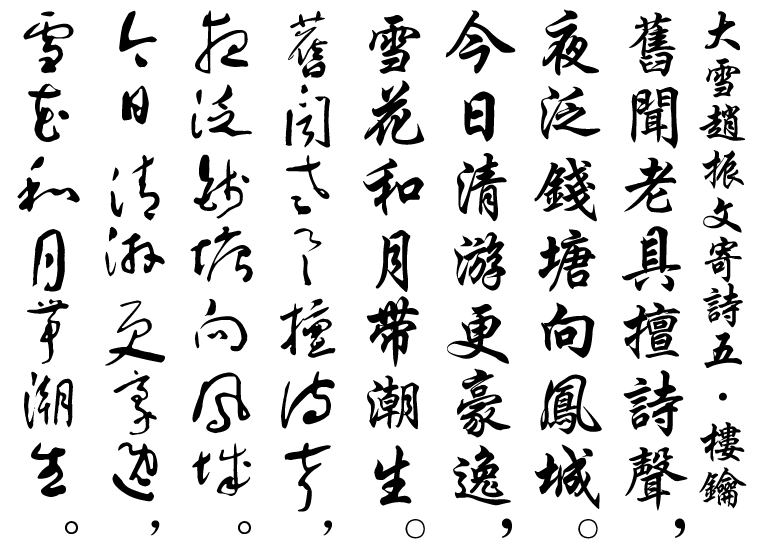 大雪趙振文寄詩五・樓鑰
舊聞老具擅詩聲，
夜泛錢塘向鳳城。
今日清游更豪逸，
雪花和月帶潮生。
舊聞老具擅詩聲，
夜泛錢塘向鳳城。
今日清游更豪逸，
雪花和月帶潮生。